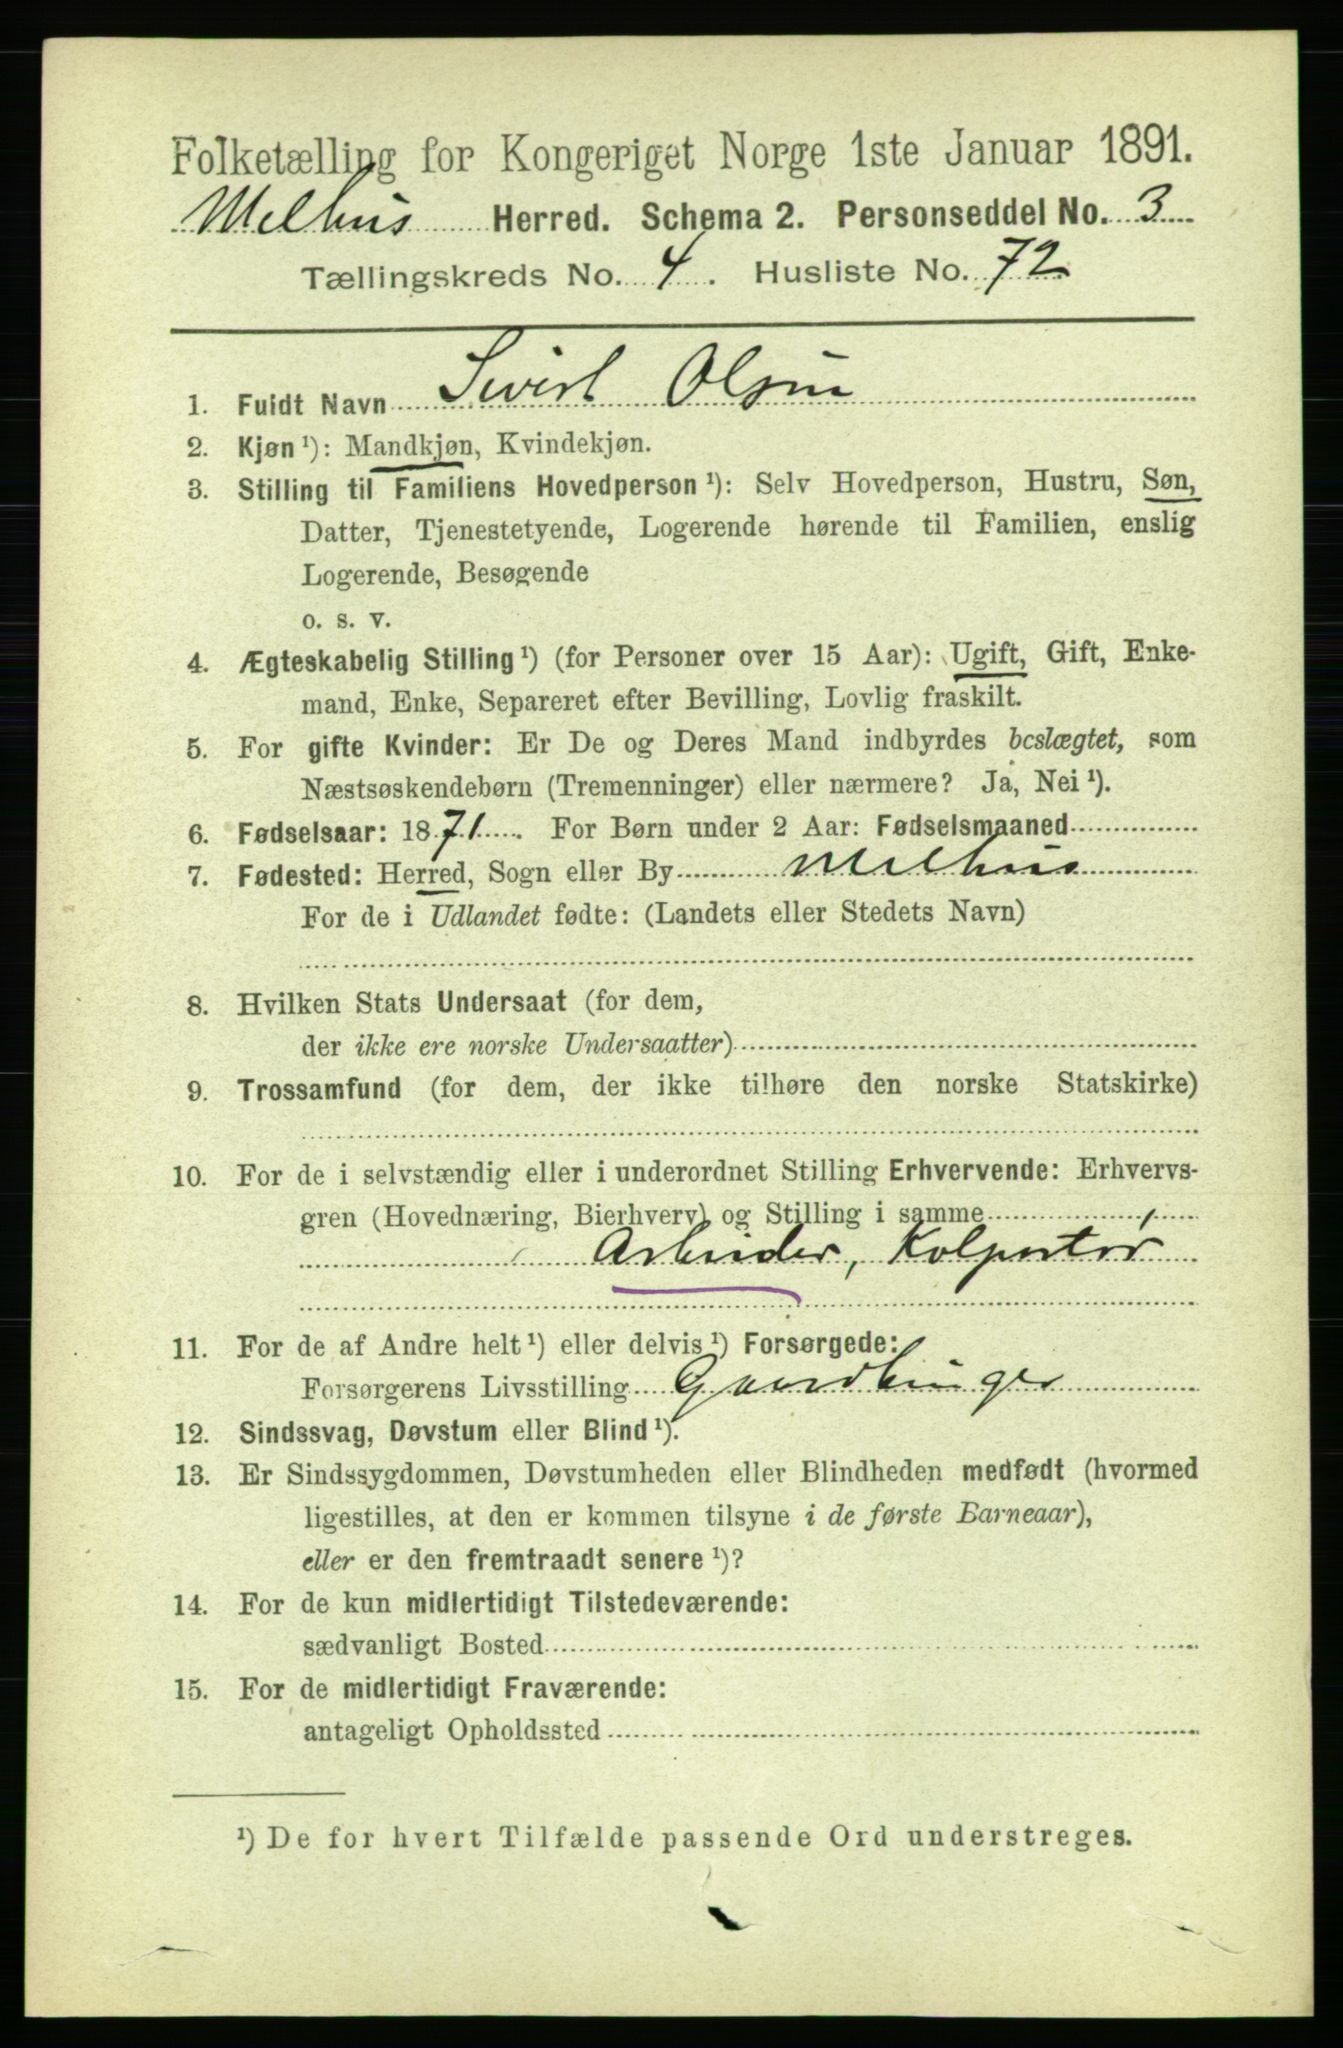 Folketælling for Kongeriget Norge 1ste Januar 1891.
Melhus Herred. Schema 2. Personseddel No. 3
Tællingskreds No. 4. Husliste No. 72
1. Fuldt Navn Sivert Olsen
2. Kjøn ¹): Mandkjøn, Kvindekjøn.
3. Stilling til Familiens Hovedperson ¹): Selv Hovedperson, Hustru, Søn,
Datter, Tjenestetyende, Logerende hørende til Familien, enslig
Logerende, Besøgende
o. s. v.
4. Ægteskabelig Stilling ¹) (for Personer over 15 Aar): Ugift, Gift, Enke-
mand, Enke, Separeret efter Bevilling, Lovlig fraskilt.
5. For gifte Kvinder: Er De og Deres Mand indbyrdes beslægtet, som
Næstsøskendebørn (Tremenninger) eller nærmere? Ja, Nei ¹).
6. Fødselsaar: 1871. For Børn under 2 Aar: Fødselsmaaned
7. Fødested: Herred, Sogn eller By Melhus
For de i Udlandet fødte: (Landets eller Stedets Navn)
8. Hvilken Stats Undersaat (for dem,
der ikke ere norske Undersaatter)
9. Trossamfund (for dem, der ikke tilhøre den norske Statskirke)
10. For de i selvstændig eller i underordnet Stilling Erhvervende: Erhvervs-
gren (Hovednæring, Bierhverv) og Stilling i samme
Arbeider, Kolportør
11. For de af Andre helt ¹) eller delvis ¹) Forsørgede:
Forsørgerens Livsstilling Gaardbruger
12. Sindssvag, Døvstum eller Blind ¹).
13. Er Sindssygdommen, Døvstumheden eller Blindheden medfødt (hvormed
ligestilles, at den er kommen tilsyne i de første Barneaar),
eller er den fremtraadt senere ¹)?
14. For de kun midlertidigt Tilstedeværende:
sædvanligt Bosted
15. For de midlertidigt Fraværende:
antageligt Opholdssted
¹) De for hvert Tilfælde passende Ord understreges.